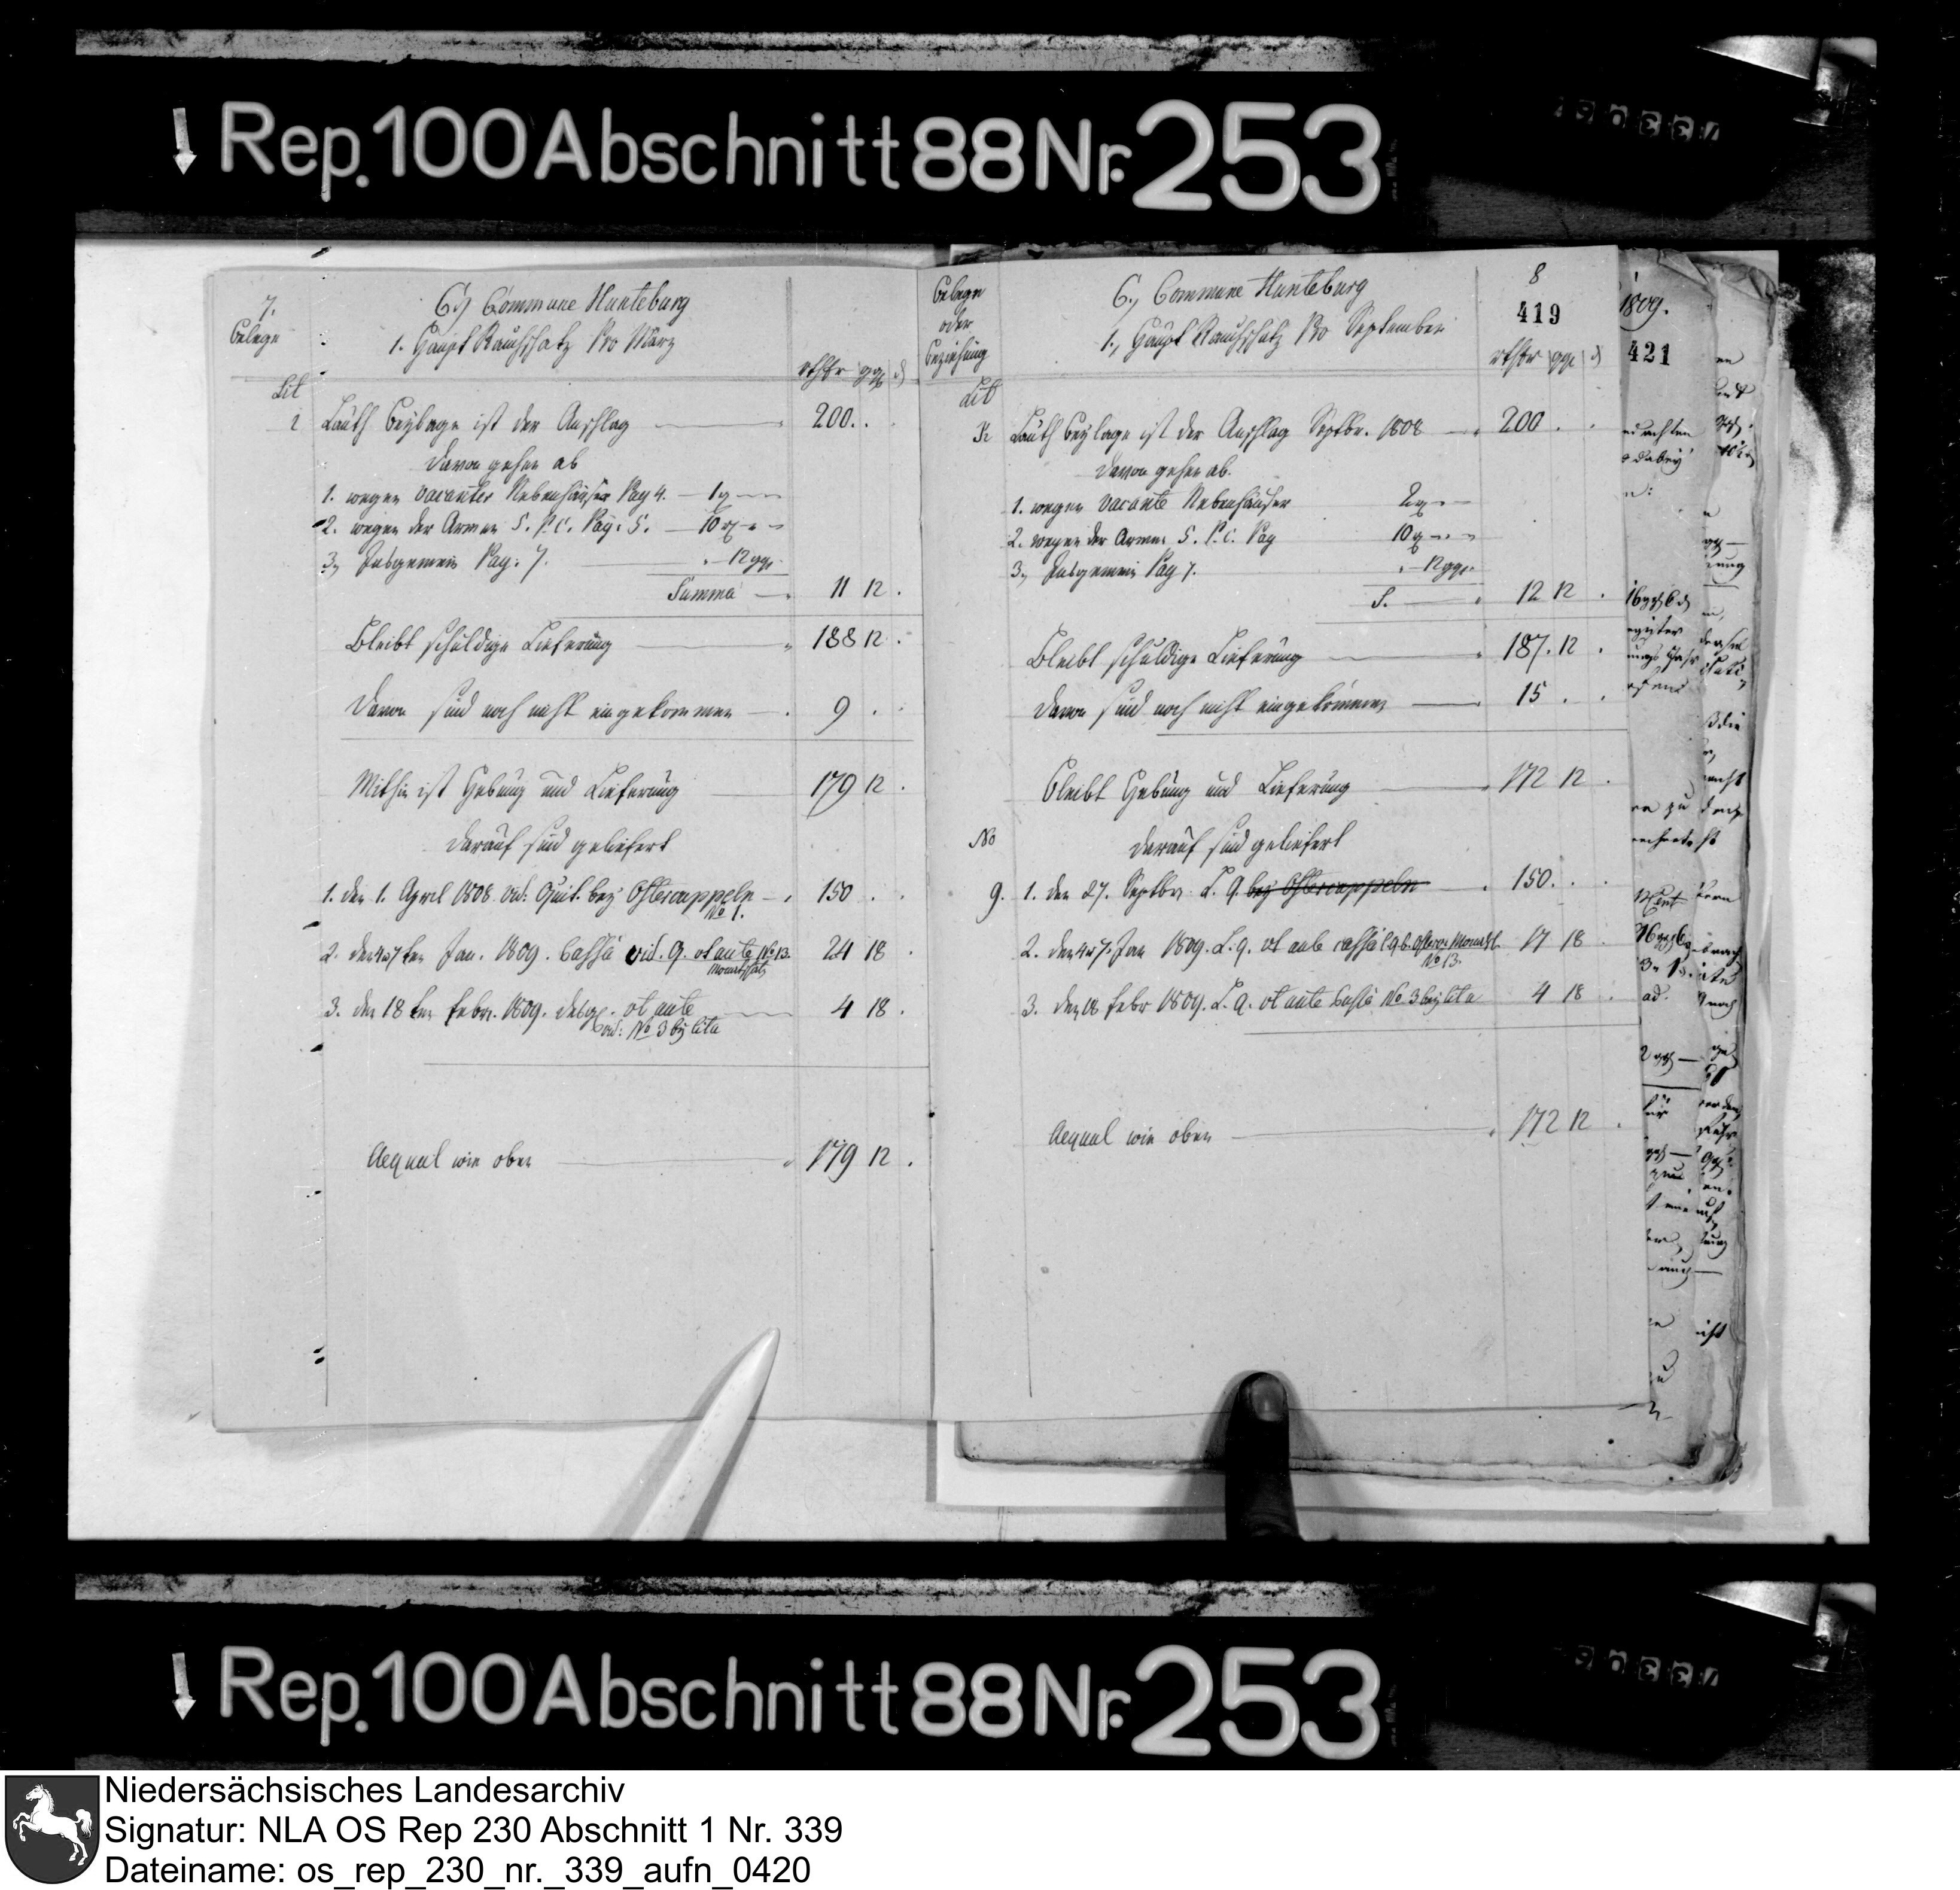 Rep. 100 Abschnitt 88 Nr. 253
7.
Belege
C., Commune Hunteburg
1. Haupt Rauchschatz Pro März
rthlr ggr d
Lit
i Lauth Beylage ist der Anschlag 200. .
davon gehen ab
1. wegen vacanter Nebenhäuser Pag 4. — 1
2. wegen der Armen 5. P. C. Pag. 5. — 10
3., Insgemein Pag: 7. 12 ggr
Summa — 11 12 .
Bleibt schuldige Lieferung 188 12 .
Davon sind noch nicht eingekommen — 9 . .
Mithin ist Hebung und Lieferung 179 12 .
darauf sind geliefert
1. den 1. April 1808 vid: Quit. bey Ostercappeln — 150 . .
No 1.
2. den Jan. 1809. Cassa vid. q. ut ante No 13. 24 18
Monatschatz
3. den 18 ten febr. 1809. ut ante 4 18 .
vid: No 3 bey lit a
Aequal wie oben 179 12 .
Belege
oder
Beziehung
C., Commune Hunteburg
1., Haupt Rauchschatz Pro September
8
419
rthlr ggr d
Lit
K Lauth Beylage ist der Anschlag Septbr. 1808 200 . .
davon gehen ab.
1. wegen vacante Nebenhäuser 2
2. wegen der Armen 5. P. C. Pag 10
3., Insgemein Pag 7. 12 ggr
S. — 12 12 .
Bleibt schuldige Lieferung 187. 12 .
Davon sind noch nicht eingekommen 15 . .
Bleibt Hebung und Lieferung 172 12 .
No darauf sind geliefert
9. 1. den 27. Septbr. L. q. bey Ostercappeln 150. .
2. den 7. Jan 1809. L. q. ut ante cassa 17 18
No 13.
3. den 18 febr 1809. L. q. ut ante Cassa No 3 bey lit a 4 18 .
Aequal wie oben 172 12 .
1809.
421
Rep. 100 Abschnitt 88 Nr. 253
Niedersächsisches Landesarchiv
Signatur: NLA OS Rep 230 Abschnitt 1 Nr. 339
Dateiname: os_rep_230_nr._339_aufn_0420